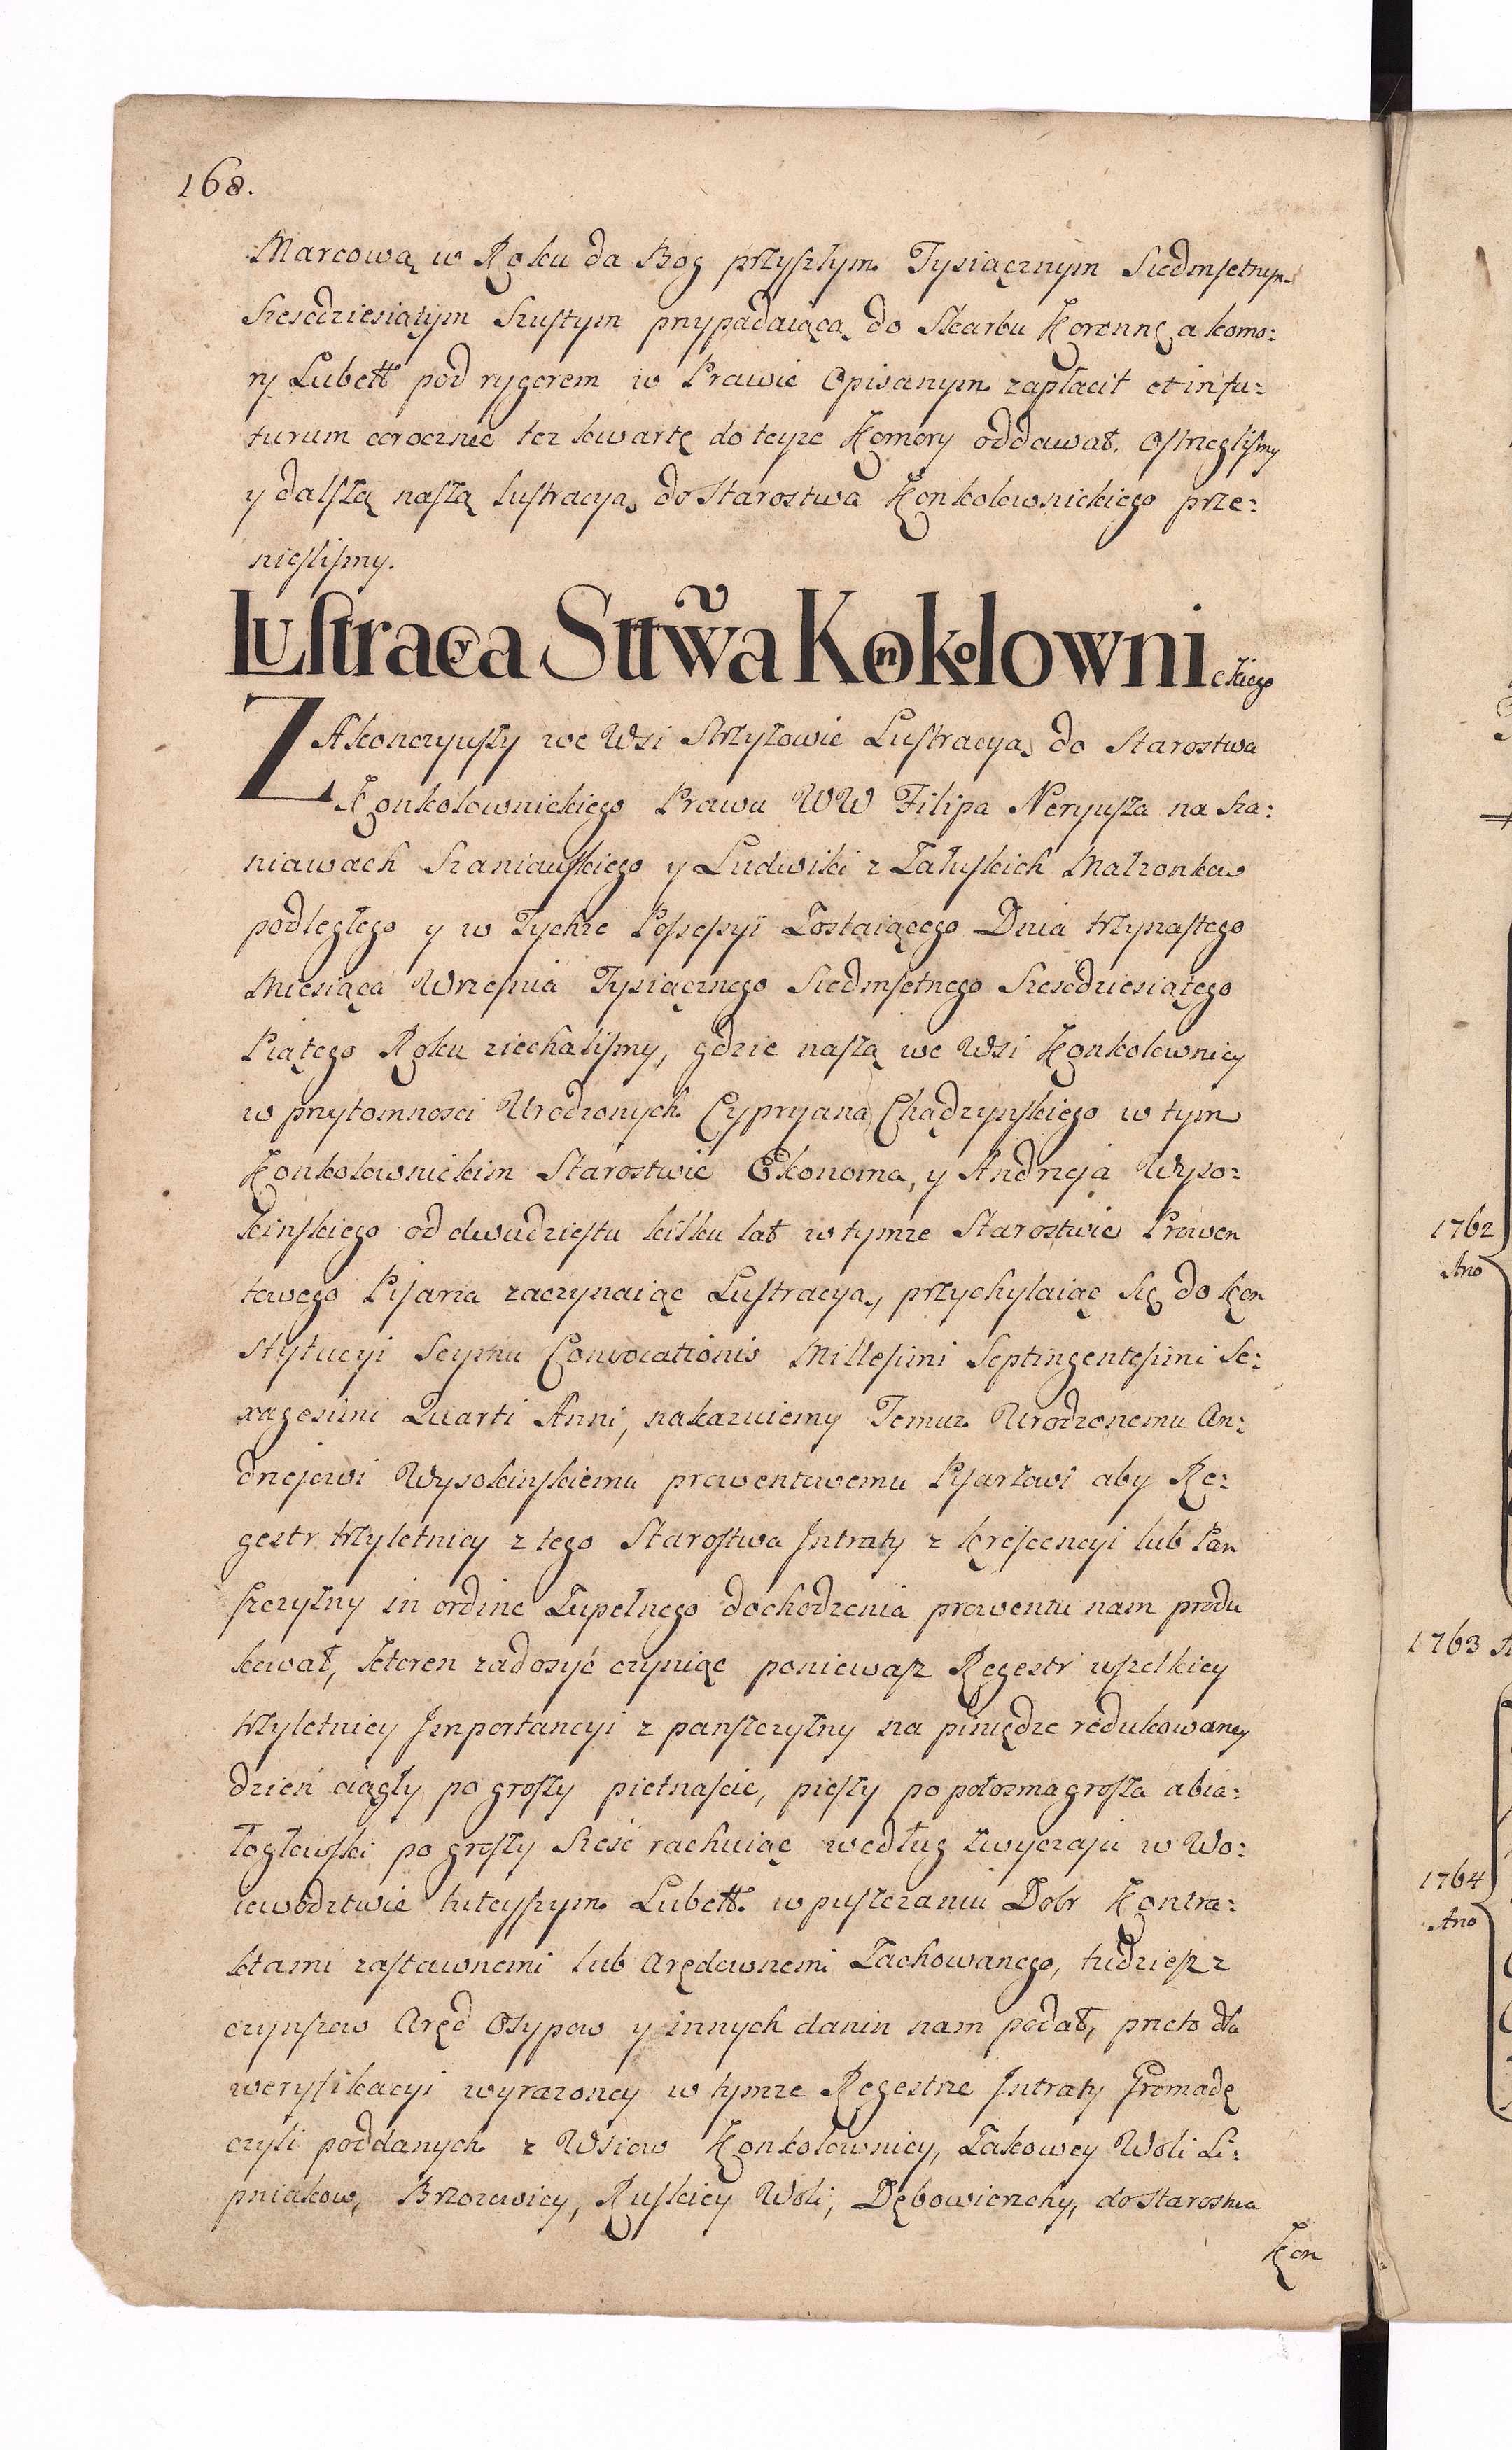 168.
Marcową w Roku da Bog przyszłym Tysiącznym Siedmsetnym
Szescdziesiątym Szustym przypadaiącą do Skarbu Koronne a komo:
ry Lubell pod rygorem w Prawie Opisanym zapłacił et in fu:
turum corocznie tez kwartę do teyze Komory oddawał. Ostrzeglismy
y dalszą naszą lustracyą do Starostwa Konkolownickiego prze:
nieslismy.
Lustracya Sttwa Konkolownickiego
ZAkonczywszy we Wsi Strzyżowie Lustracyą do Starostwa
Konkolownickiego Prawu WW Filipa Neryusza na Sza:
niawach Szaniawskiego y Ludwiki z Załuskich Małzonkow
podległego y w Tychże Possessyi Zostaiącego Dnia trzynastego
Miesiąca Wrzesnia Tysiącznego Siedmsetnego Szescdziesiątego
Piątego Roku ziechalismy, gdzie naszą we Wsi Konkolownicy
w przytomnosci Urodzonych Cypryana Chądzynskiego w tym
Konkolownickim Starostwie Ekonoma, y Andrzeja Wyso:
kinskiego od dwudziestu kilku lat w tymze Starostwie Prowen
towego Pisarza zaczynaiąc Lustracyą, przychylaiąc się do Kon
stytucyi Seymu Convocationis Millesimi Septingentesimi Se:
xagesimi Quarti Anni, nakazuiemy Temuz Urodzonemu An:
drzejowi Wysokinskiemu prowentowemu Pisarzowi aby Re:
gestr trzyletnicy z tego Starostwa Intraty z krescencyi lub Pan
szczyzny in ordine Zupełnego dochodzenia prowentu nam produ
kował, ktoren zadosyć czyniąc poniewasz Regestr wszelkiey
trzyletniey Importancyi z panszczyzny na piniędze redukowaney
dzień ciągły po groszy piętnascie, pieszy po połosma grosza abia:
łogłowski po groszy Sześć rachuiąc według zwyczaju w Wo:
iewodztwie tuteyszym Lubell. w puszczaniu Dobr Kontra:
ktami zastawnemi lub arędownemi Zachowanego, tudziesz z
czynszow Aręd Osypow y innych danin nam podał, przeto dla
weryfikacyi wyrazoney w tymze Regestrze Intraty Gromadę
czyli poddanych z Wsiow Konkolownicy, Zakowey Woli Li:
pniakow, Brzozowicy, Ruskiey Woli, Dębowierzchy, do Starostwa
Kon
1762
Ano
1763
1764
Ano